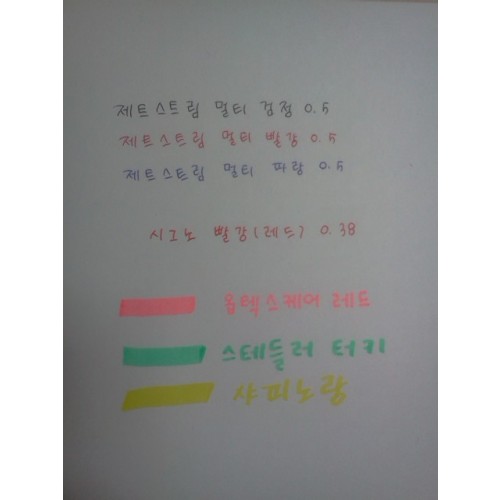 제트스트림 멀티 검정 0.5
제트스트림 멀티 빨강 0.5
제트스트림 멀티 파랑 0.5
시그노 빨강(레드) 0.38
옵텍스케어 레드
스테들러 터키
샤피노랑